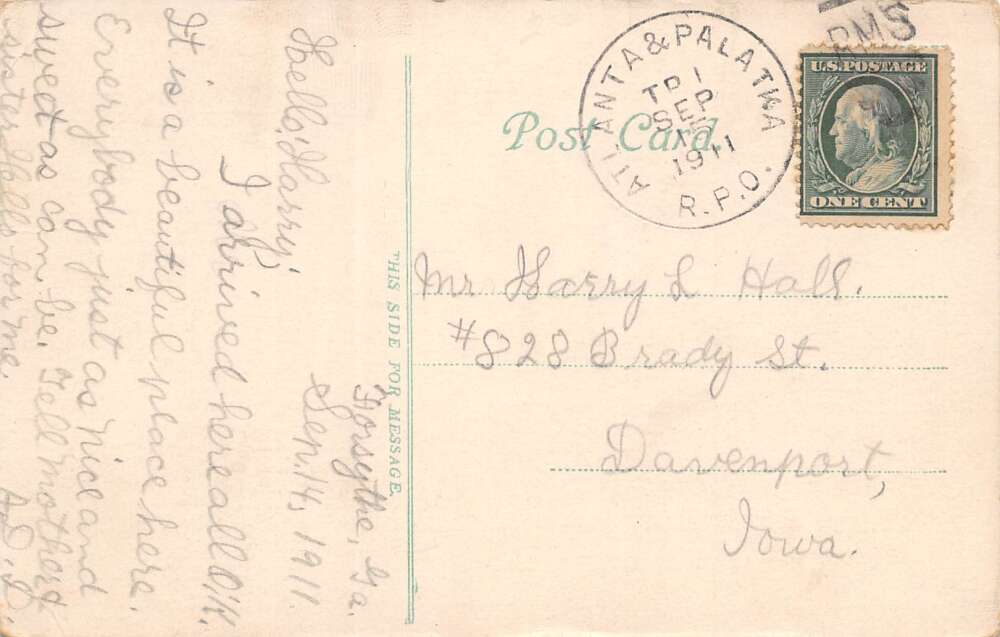 Forsythe, Ga.
Sep. 14, 1911.
Hello, Harry;
I arrived here all O.K.
It is a beautiful place here.
Everybody just as nice and
sweet as can be. Tell mother &
sister Hello for me.
THIS SIDE FOR MESSAGE.
Post Card.
ATLANTA & PALATKA
TR 1
SEP
15
1911
R.P.O.
RMS
U.S. POSTAGE
ONE CENT
Mr Harry L Hall.
#828 Brady St.
Davenport,
Iowa.